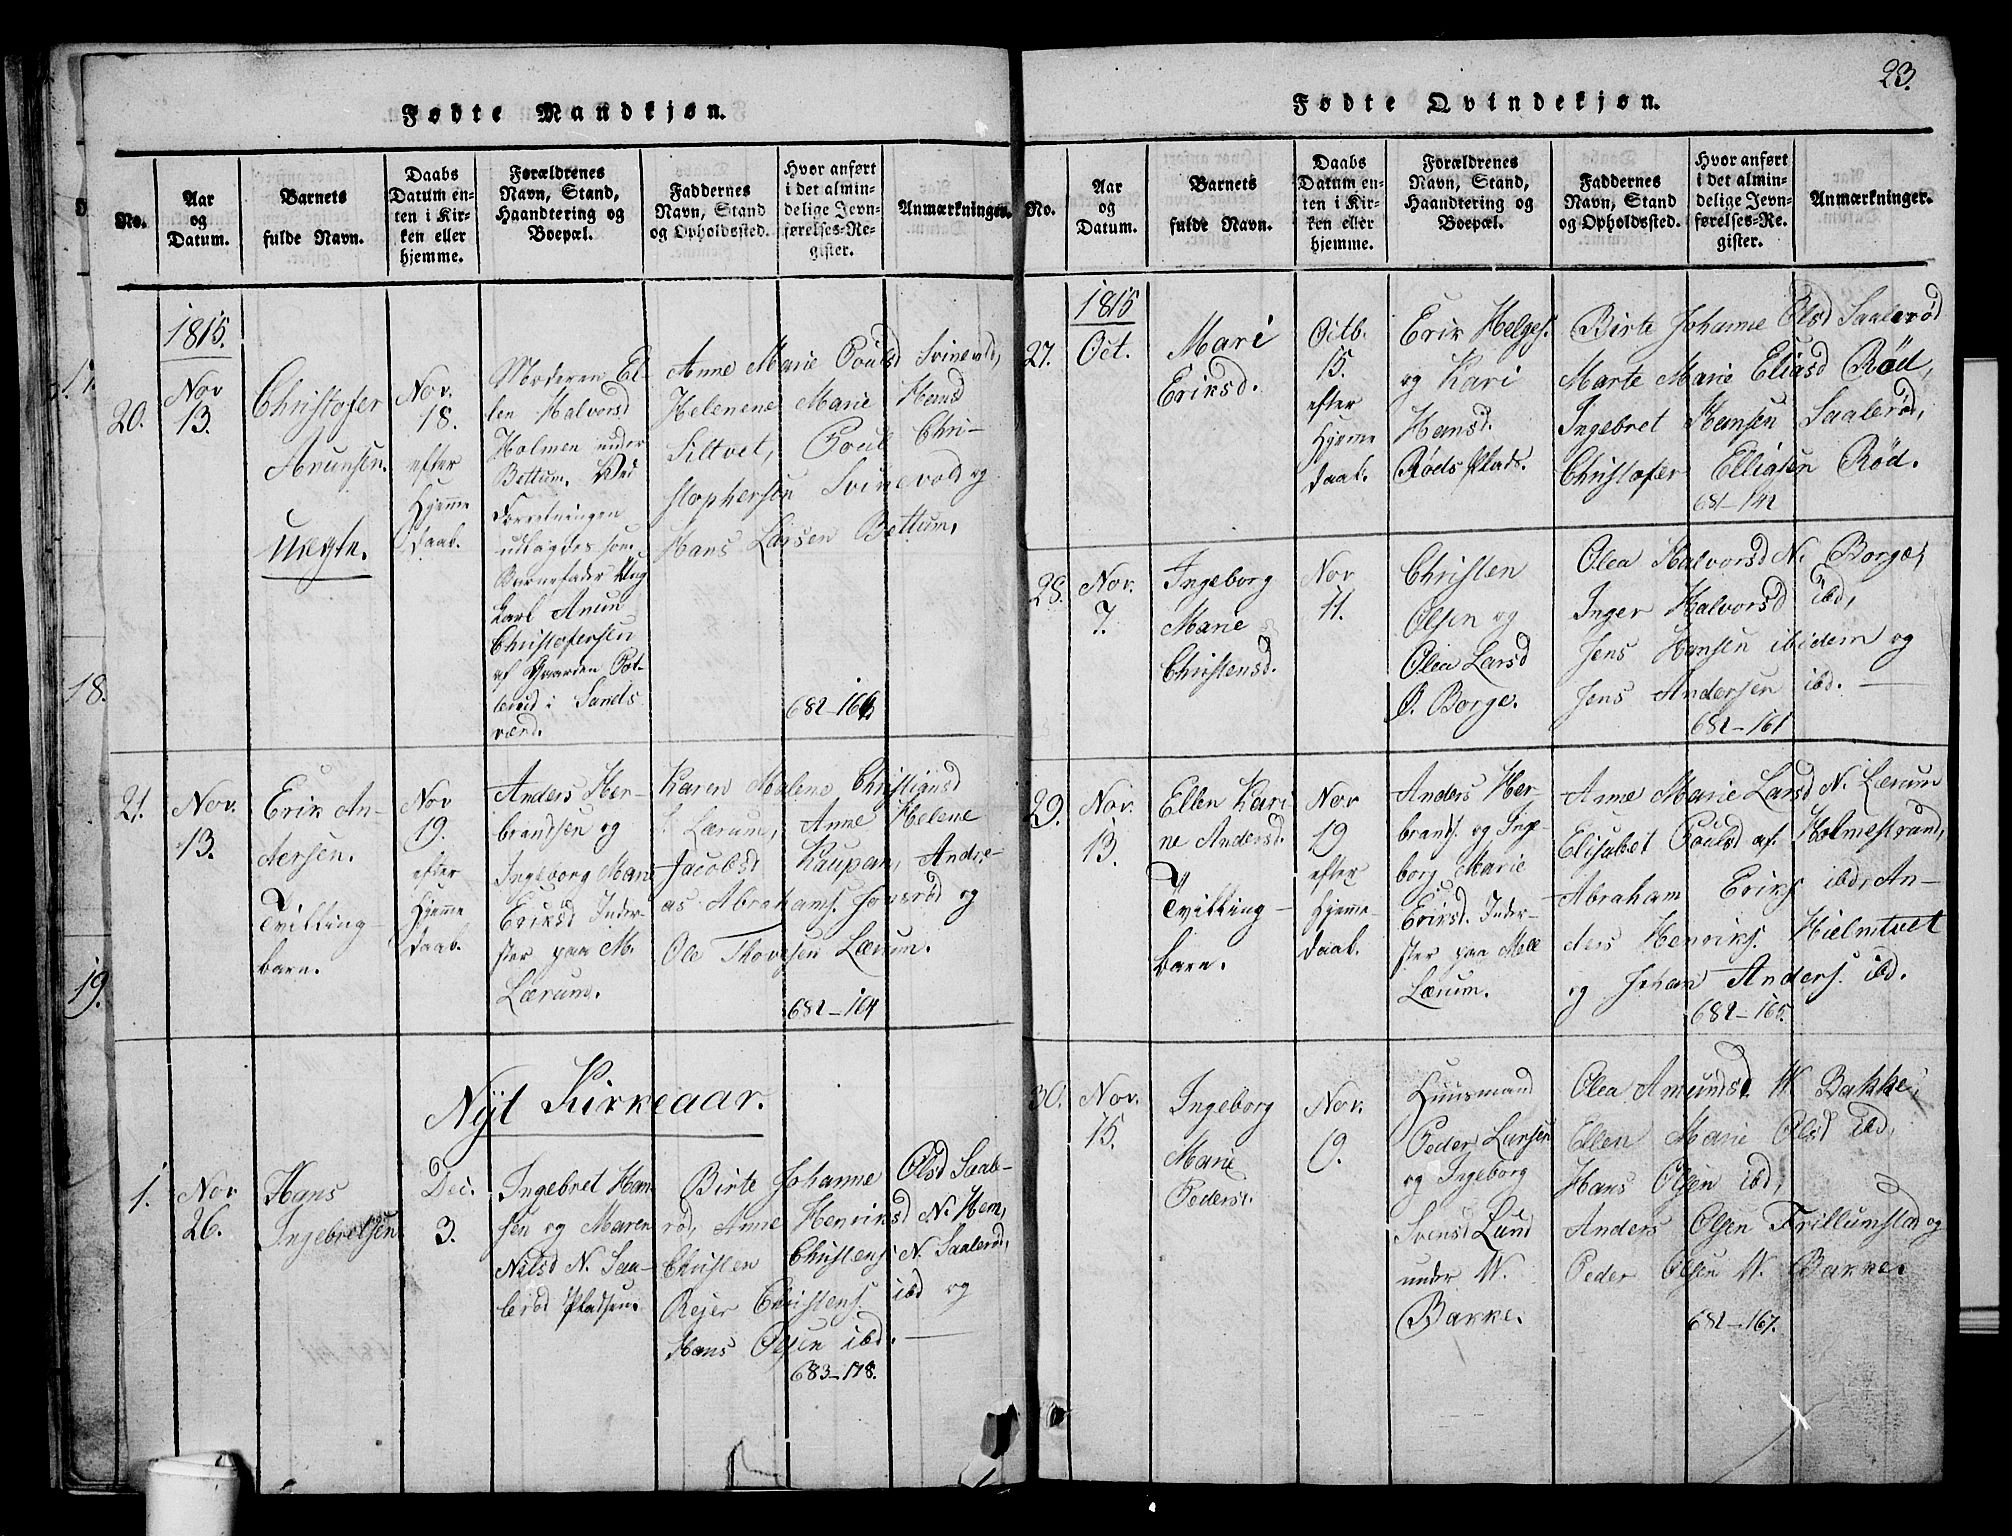 Fødte Mandkjøn.
No.
Aar
og
Datum.
Barnets
fulde Navn.
Daabs
Datum en-
ten i Kir-
ken eller
hjemme.
Forældrenes
Navn, Stand,
Haandtering og
Boepæl.
Faddernes
Navn, Stand
og Opholdssted.
Hvor anført
i det almin-
delige Jevn-
førelses-Re-
gister.
Anmærkninger.
1815.
20.
Nov
13.
Christofer
Anunsen.
Uægte.
Nov.
18.
efter
Hjemme
daab.
Moderen El-
len Halvorsd
Holmen under
Bettum. Ved
Forretningen
udlagdes som
Barnefader Ung
karl Anun
Christofersen
af Gaarden Pot-
lerud i Sands
værd.
Anne Marie Pouls&#100; Svinevold,
Helenene Marie Hansd
Siltvet, Poul Chri-
stophersen Svinevold og
Hans Larsen Bettum,
682-166
21.
Nov.
13.
Erik An-
dersen.
Tvilling
barn.
Nov
19.
efter
Hjemme
daab.
Anders Her-
brandsen og
Ingeborg Mari
Eriksd Inder-
ster paa M.
Lærum.
Karen Malene Christiansd
Lærum, Anne Helene
Jacobsd Kaupan, Andre-
as Abrahams. Jonsrød og
Ole Thovesen Lærum.
682-164
Nyt Kirkeaar.
1.
Nov
26.
Hans
Ingebretsen
Dec.
3.
Ingebret Han-
sen og Maren
Nilsd N. Saa-
lerød Pladsen.
Birte Johanne Olsd Saale-
rød, Anne Henriksd N. Hem,
Christen Christens N. Saalerød,
Rejer Christens. ibd og
Hans Olsen ibd.
683-178.
23.
Fødte Qvindekjøn.
No.
Aar
og
Datum.
Barnets
fulde Navn.
Daabs
Datum en-
ten i Kir-
ken eller
hjemme.
Forældrenes
Navn, Stand,
Haandtering og
Boepæl.
Faddernes
Navn, Stand
og Opholdssted.
Hvor anført
i det almin-
delige Jevn-
førelses-Re-
gister.
Anmærkninger.
1815
27.
Oct.
Mari
Eriksd.
Octb.
15.
efter
Hjemme
daab.
Erik Helges.
og Kari
Hansd.
Røds Plads.
Birte Johanne Olsd Saalerød
Marte Marie Eliasd Rød,
Ingebret Hansen Saalerød,
Christofer Elliasen Rød.
681-142
28.
Nov.
7.
Ingeborg
Marie
Christensd.
Nov
11.
Christen
Olsen og
Olea Larsd
Ø. Borge.
Olea Halvorsd N. Borge,
Inger Halvorsd ibd,
Jens Hansen ibidem og
Jens Andersen ibd.
682-161
29.
Nov.
13.
Ellen Kari
ne Andersd.
Tvilling-
barn.
Nov
19
efter
Hjemme-
daab.
Anders Her-
brands. og Inge-
borg Marie
Eriksd. Inder-
ster paa Mel
Lærum.
Anne Marie Larsd N. Lærum
Elisabet Poulsd af Holmestrand,
Abraham Eriks ibd, An-
ders Henriks. Hielmtvet
og Johan Anders. ibd.
682-165.
30.
Nov.
15.
Ingeborg
Marie
Pedersd.
Nov.
19.
Huusmand
Peder Larsen
og Ingeborg
Svensd Lund
under W.
Bakke.
Olea Amundsd W Bakke,
Ellen Marie Olsd ibd,
Hans Olsen ibd,
Anders Olsen Trillumstad og
Peder Olsen W. Bakke.
682-167.
17.
18.
19.